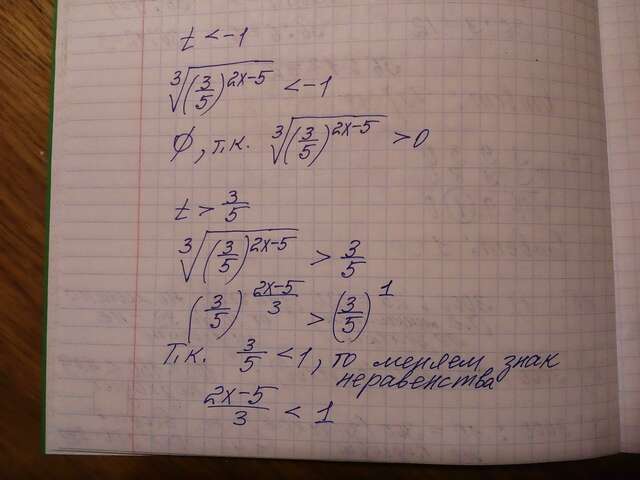 t < -1
∛((3/5)^(2x-5)) < -1
∅, т.к. ∛((3/5)^(2x-5)) > 0
t > 3/5
∛((3/5)^(2x-5)) > 3/5
(3/5)^((2x-5)/3) > (3/5)^1
Т.к. 3/5 < 1, то меняем знак
неравенства
(2x-5)/3 < 1